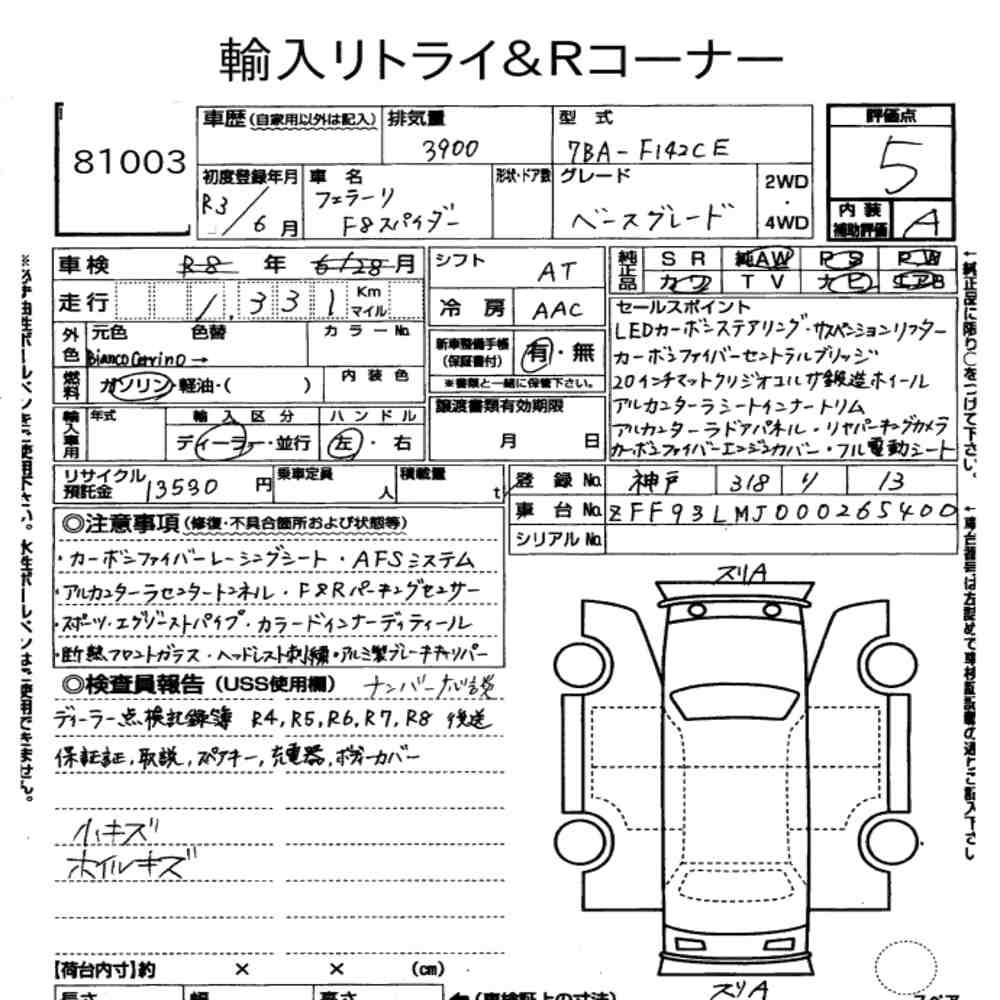 輸入リトライ&Rコーナー
81003
車歴(自家用以外は記入)
排気量
3900
型 式
7BA-F142CE
評価点
5
初度登録年月
R3/6月
車 名
フェラーリ
F8スパイダー
形状・ドア数
グレード
ベースグレード
2WD
・
4WD
内装
補助評価
A
車検 R8年 6/28月
走行 1,331 Km
マイル
外色
元色 色替
カラーNo.
Bianco Cervino→
燃料
ガソリン・軽油・( )
内装色
輸入車用
年式
輸入区分
ディーラー・並行
ハンドル
左・右
シフト AT
冷房 AAC
新車整備手帳
(保証書付)
有・無
※書類と一緒に保管下さい。
譲渡書類有効期限
月 日
純正品
SR 純AW PS PW
カワ TV ナビ エアB
セールスポイント
LEDカーボンステアリング・サスペンションリフター
カーボンファイバーセントラルブリッジ
20インチマットグリジオコルサ鍛造ホイール
アルカンターラシートインナートリム
アルカンターラドアパネル・リヤパーキングカメラ
カーボンファイバーエンジンカバー・フル電動シート
リサイクル
預託金
13530円
乗車定員
人
積載量
t
登録No. 神戸 318 り 13
車台No. ZFF93LMJ000265400
シリアルNo.
◎注意事項(修復・不具合箇所および状態等)
・カーボンファイバーレーシングシート・AFSシステム
・アルカンターラセンタートンネル・F&Rパーキングセンサー
・スポーツ・エグゾーストパイプ・カラードインナーディティール
・断熱フロントガラス・ヘッドレスト刺繍・アルミ製ブレーキキャリパー
◎検査員報告(USS使用欄)
ディーラー点検記録簿 R4,R5,R6,R7,R8 後送
保証証,取説,スペアキー,充電器,ボディーカバー
小キズ
ホイルキズ
ズリA
ズリA
【荷台内寸】約 × × (cm)
長さ 幅 高さ
(車検証上の寸法)
スペア
※必ず油性ボールペンをご使用下さい。水性ボールペンはご使用できません。
←純正品に限り○をつけて下さい。